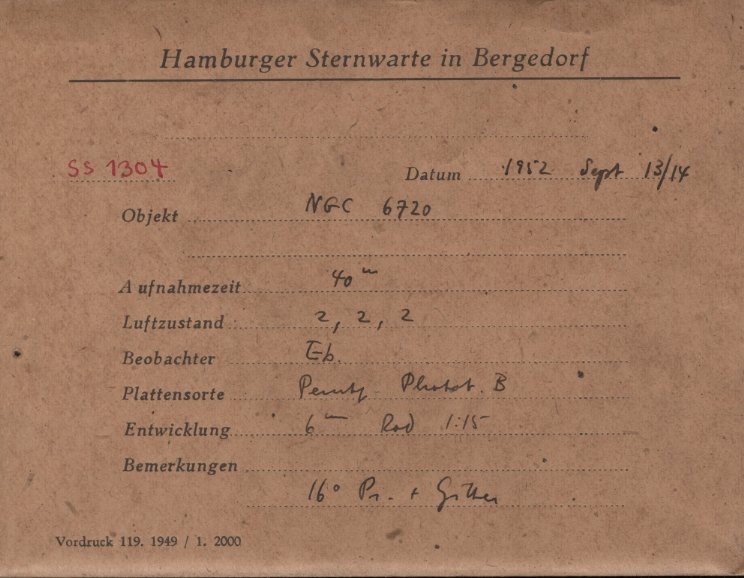 Hamburger Sternwarte in Bergedorf
SS 1304
Datum 1952 Sept 13/14
Objekt NGC 6720
Aufnahmezeit 40 m
Luftzustand 2, 2, 2
Beobachter Eb.
Plattensorte Perutz Photot. B
Entwicklung 6 m Rod 1:15
Bemerkungen
16° Pr. + Gitter
Vordruck 119. 1949 / 1. 2000